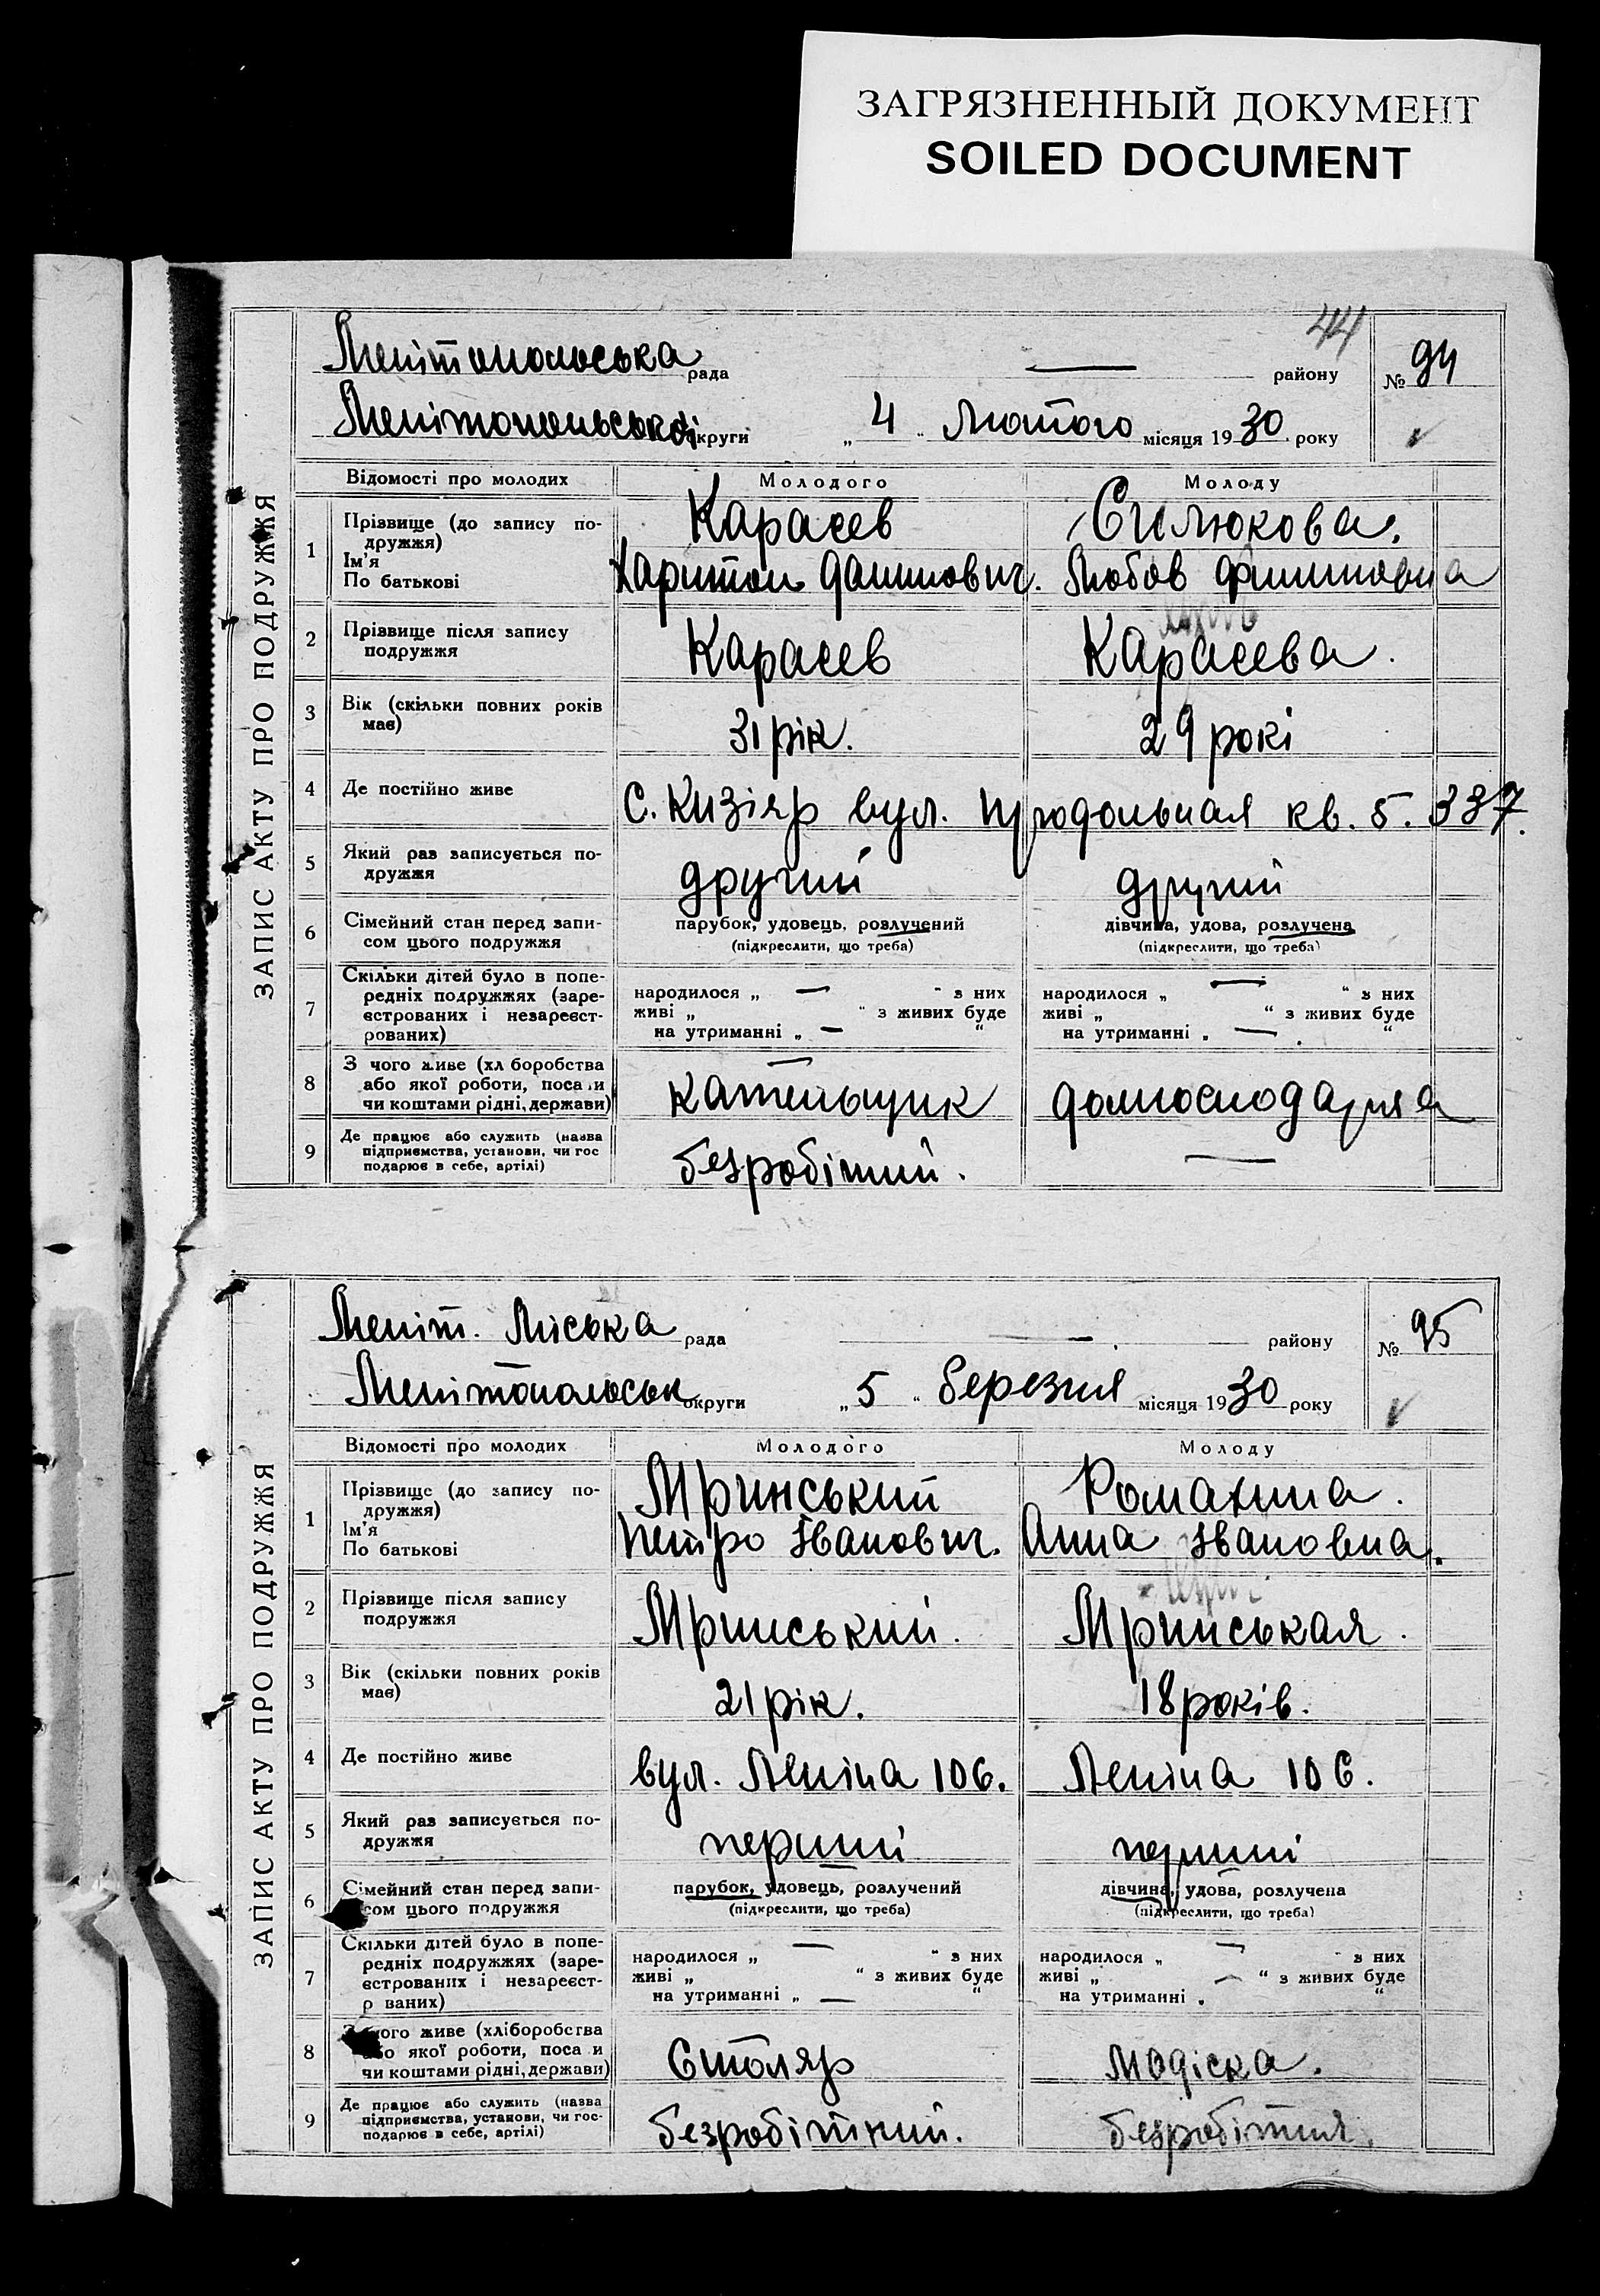 ЗАГРЯЗНЕННЫЙ ДОКУМЕНТ
SOILED DOCUMENT
44
ЗАПИС АКТУ ПРО ПОДРУЖЖЯ
Мелітопольська рада — району № 94
Мелітопольської округи „ 4 “ Лютого місяця 1930 року
Відомості про молодих Молодого Молоду
1 Прізвище (до запису по-
дружжя)
Ім'я
По батькові
Карасев Силюкова.
Харитон Данилович. Любов Филиповна
2 Прізвище після запису
подружжя
Карасев Карасева.
3 Вік (скільки повних років
має)
31 рік. 29 рокі
4 Де постійно живе С. Кизіяр вул. Продольная кв. 5. 337.
5 Який раз записується по-
дружжя
другий другий
6 Сімейний стан перед запи-
сом цього подружжя
парубок, удовець, розлучений дівчина, удова, розлучена
(підкреслити, що треба) (підкреслити, що треба)
7 Скільки дітей було в попе-
редніх подружжях (заре-
єстрованих і незареєст-
рованих)
народилося „ — “ з них народилося „ — “ з них
живі „ “ з живих буде живі „ “ з живих буде
на утриманні „ — “ на утриманні „ — “
8 З чого живе (хл боробства
або якої роботи, поса и
чи коштами рідні, держави)
кательщик домгосподарка
9 Де працює або служить (назва
підприємства, установи, чи гос
подарює в себе, артілі)
безробітний. —
ЗАПИС АКТУ ПРО ПОДРУЖЖЯ
Меліт. Міська рада — району № 95
Мелітопольськ округи „ 5 “ березня місяця 1930 року
Відомості про молодих Молодого Молоду
1 Прізвище (до запису по-
дружжя)
Ім'я
По батькові
Мринський Романина.
Петро Іванович. Анна Івановна.
2 Прізвище після запису
подружжя
Мринський. Мринськая.
3 Вік (скільки повних років
має)
21 рік. 18 років.
4 Де постійно живе вул. Леніна 106. Леніна 106.
5 Який раз записується по-
дружжя
перший перший
6 Сімейний стан перед запи-
сом цього подружжя
парубок, удовець, розлучений дівчина, удова, розлучена
(підкреслити, що треба) (підкреслити, що треба)
7 Скільки дітей було в попе-
редніх подружжях (заре-
єстрованих і незареєст-
р ваних)
народилося „ — “ з них народилося „ — “ з них
живі „ “ з живих буде живі „ — “ з живих буде
на утриманні „ — “ на утриманні „ “
8 З чого живе (хліборобства
або якої роботи, поса и
чи коштами рідні, держави)
Столяр модіска.
9 Де працює або служить (назва
підприємства, установи, чи гос-
подарює в себе, артілі)
безробітний. безробітня.